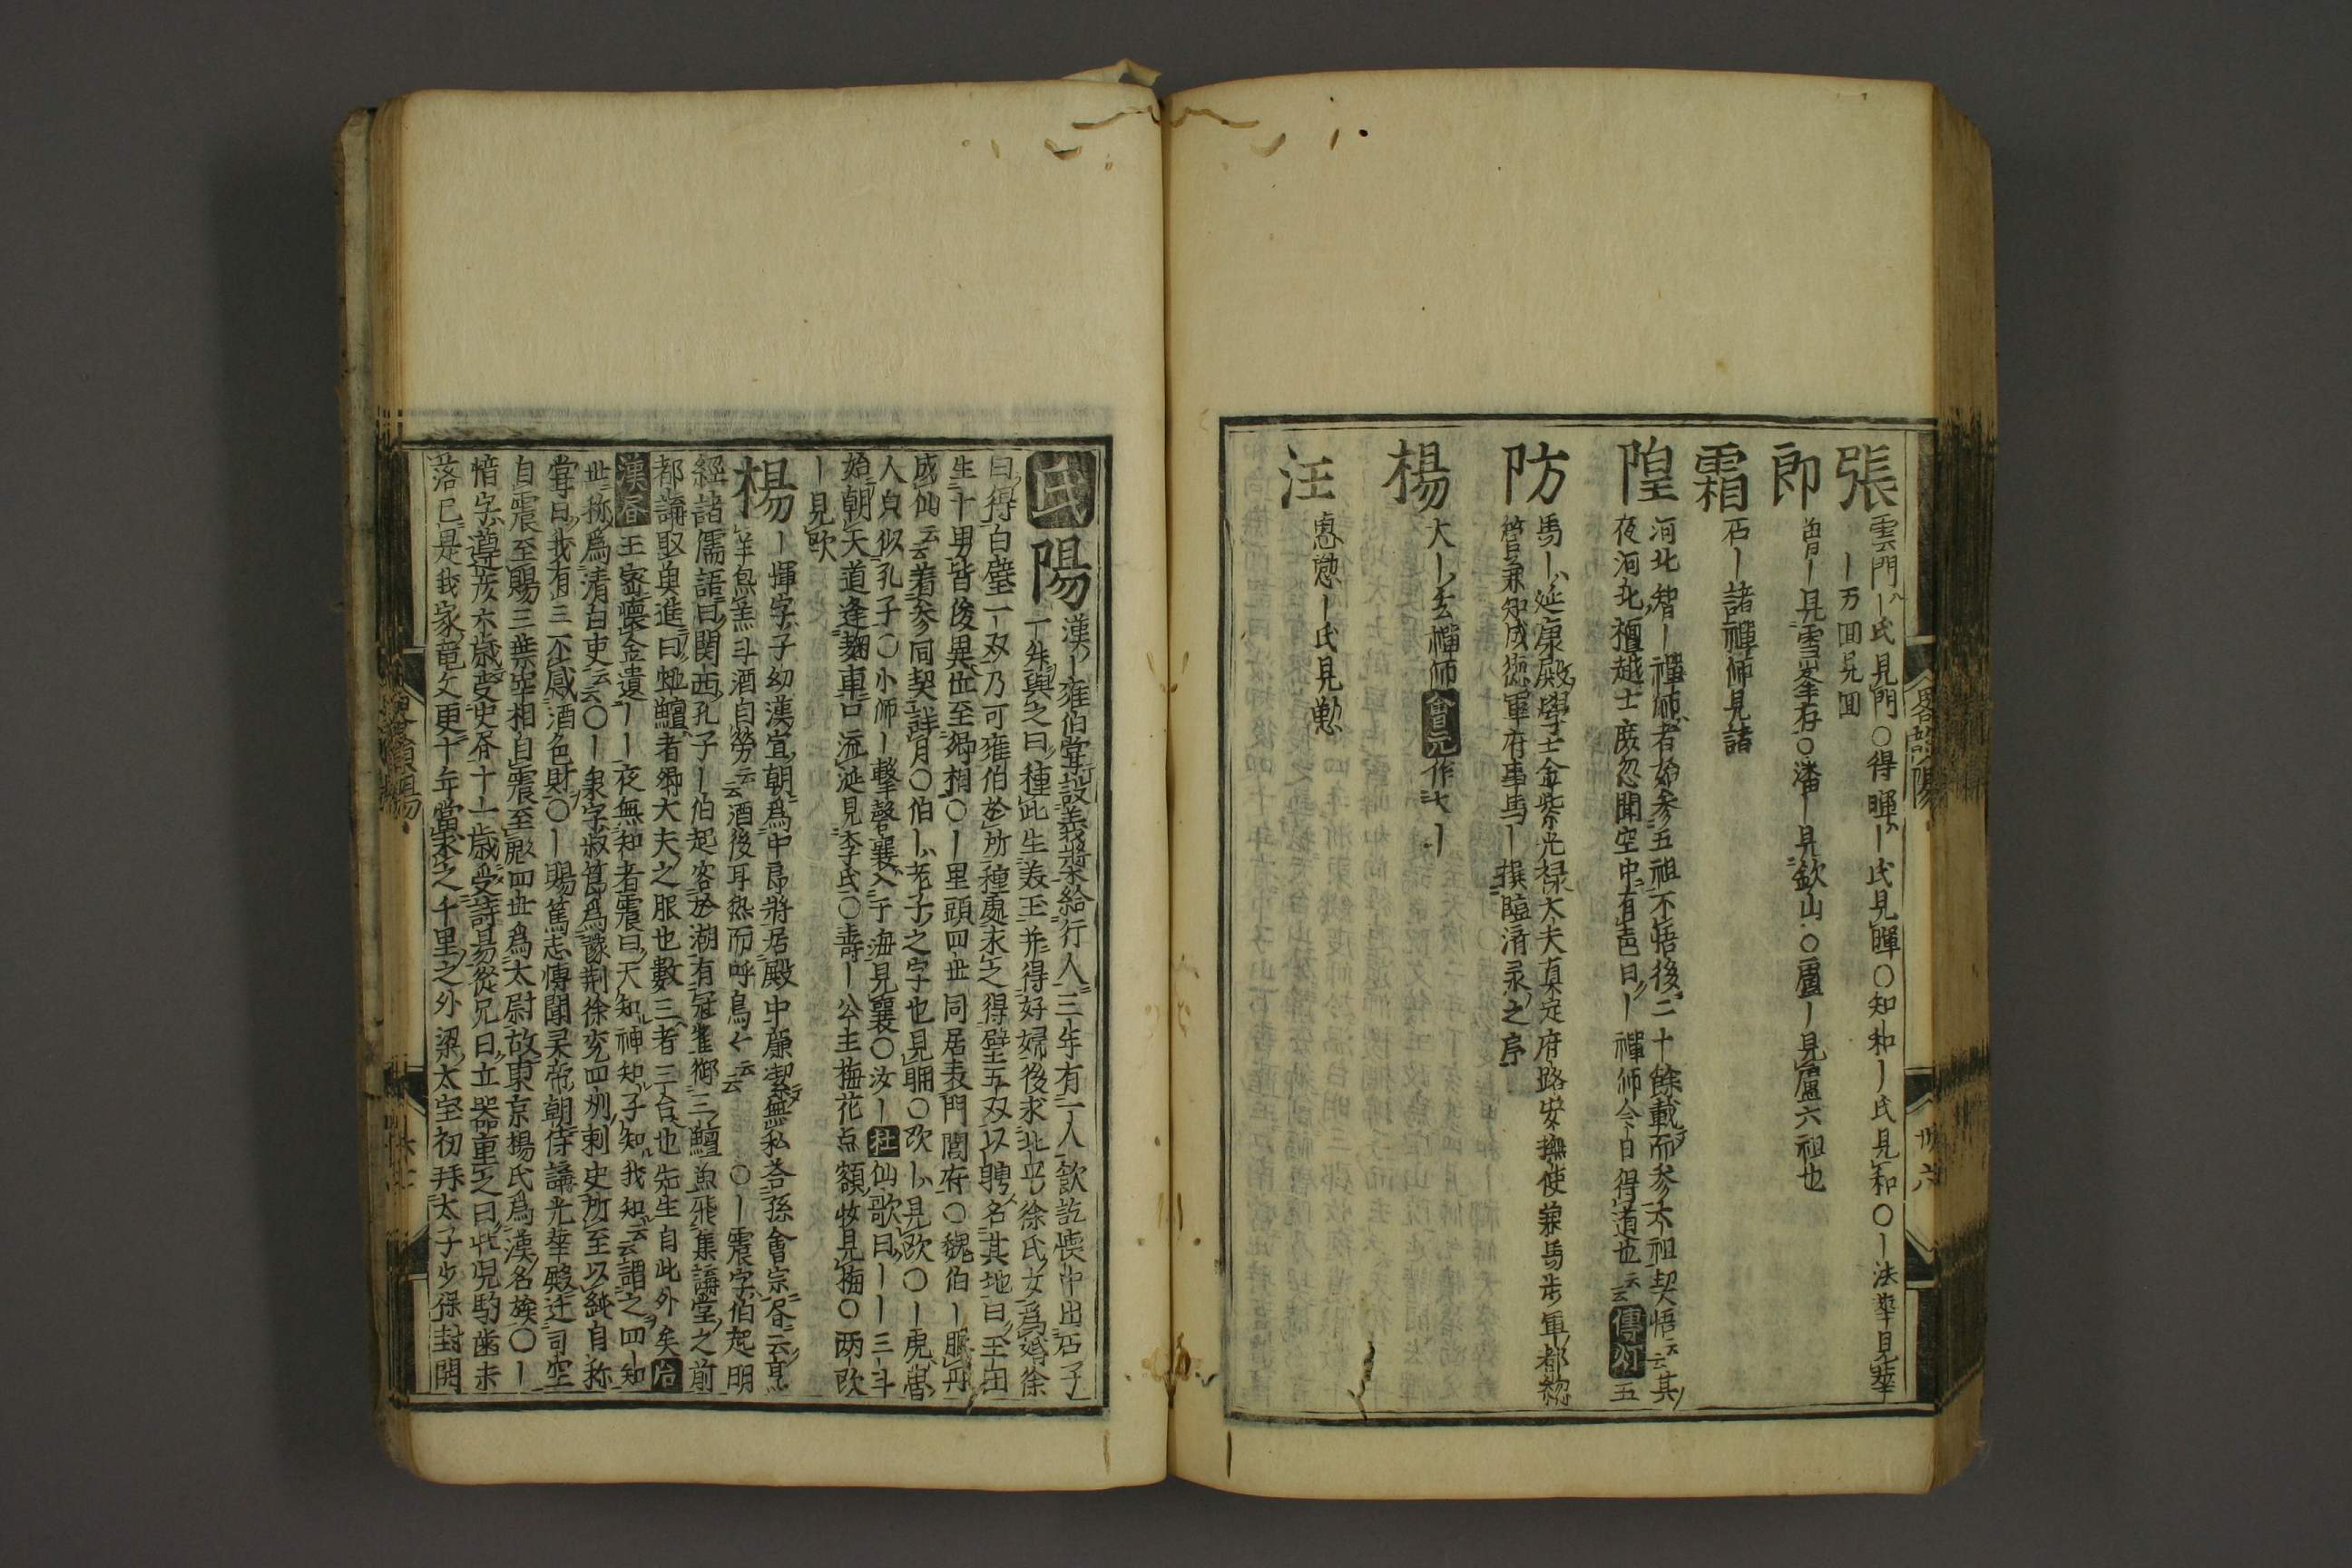 張 雲門ハ丨氏見門○得暉丨氏見暉○知和丨氏見和○丨法華見華
丨万回見回
郎 曽丨見雪峯存○潘丨見欽山○盧丨見盧六祖也
霜 石丨諸禪師見諸
隍 河北智丨禪師者始参五祖不悟後二十餘載而参六祖契悟云云其
夜河北檀越士庶忽聞空中有声曰丨禪師今日得道也云云傳灯五
防 馬丨延康殿學士金紫光禄大夫真定府路安撫使兼馬歩軍都総
管兼知成徳軍府事馬丨撰臨済录之序
楊 大丨玄禪師會元作大丨
汪 惠懃丨氏見懃
氏
陽 漢丨雍伯掌設義漿給行人三年有一人飲訖懐中出石子
一升與之曰種此生美玉并得好婦後求北平徐氏女爲婚徐
曰得白璧一双乃可雍伯於所種處求之得璧五双以聘名其地曰玉田
生十男皆俊異世至卿相○丨里頭四世同居表門閭存○魏伯丨服丹
成仙云云着参同契詳月○伯丨老子之字也見聃○欧丨見欧○丨虎嘗
人皃似孔子○小師丨擊磬襄入于海見襄○汝丨杜仙歌曰丨丨三斗
始朝天道逢麹車口流涎見李氏○壽丨公主梅花点額妝見梅○两欧
丨見欧
楊 丨惲字子幼漢宣朝爲中郎將居殿中廉潔無私荅孫會宗各云烹
羊炰羔斗酒自勞云云酒後耳热而呼烏々云云○丨震字伯起明
經諸儒語曰関西孔子丨伯起客於湖有冠雀御三鱣魚飛集講堂之前
都講取魚進曰蚍鱣者卿大夫之服也數三者三台也先生自此外矣
漢各王密懐金遺丨丨夜無知者震曰天知神知子知我知云云謂之四丨知
世称爲清白吏云云○丨秉字叔節爲豫荆徐兖四刕刺史所至以純自称
嘗曰我有三不惑酒色財○丨賜篤志博聞灵帝朝侍講光華殿迁司空
自震至賜三葉宰相自震至彪四世爲太尉故東京楊氏爲漢名族○丨
愔字尊彦六歳受史各十一歳受詩易從兄曰立器重之曰此児駒歯未
落已是我家竜文更十年當求之千里之外梁太宝初拜太子少保封開